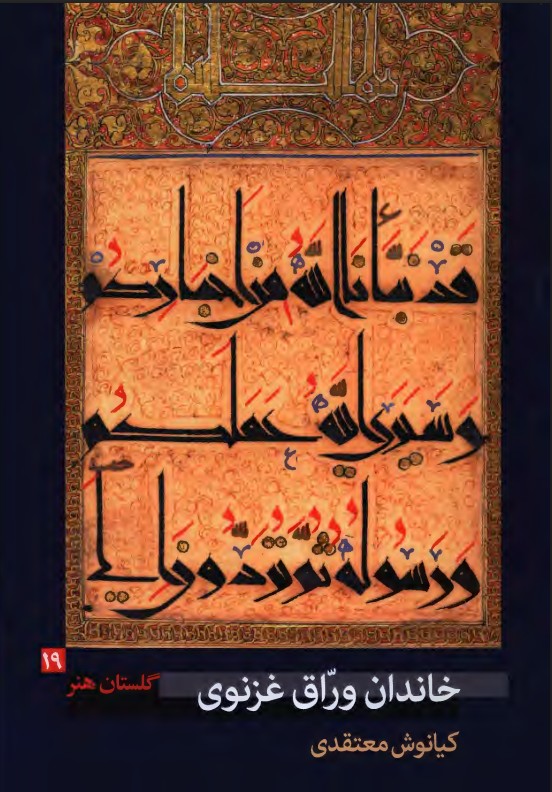 قد نبأنا الله من اخباركم
وسيرى الله عملكم
ورسوله ثم تردون الى
۱۹
خاندان ورّاق غزنوی
گلستان هنر
کیانوش معتقدی